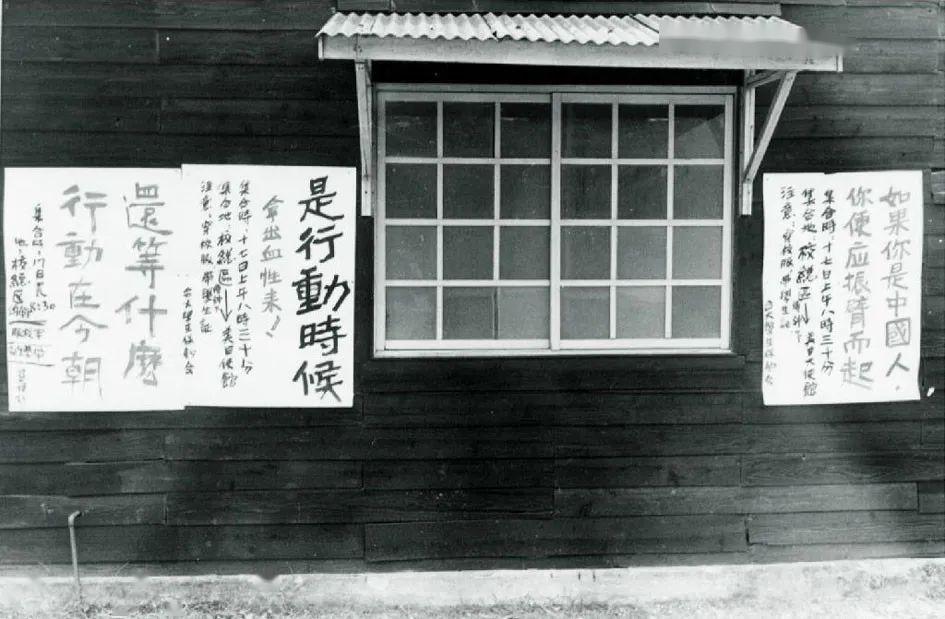 如果你是中國人，
你便应振臂而起
集合時：十七日上午八時三十分
集合地：校總区傅鐘下→美日大使館
注意：穿校服、帶學生証
台大學生保釣会
是行動時候
拿出血性來！
集合時：十七日上午八時三十分
集合地：校總區傅鐘→美日使館
注意：穿校服、帶學生証
台大學生保釣会
還等什麼
行動在今朝
集合時：17日晨8:30
地：校總區